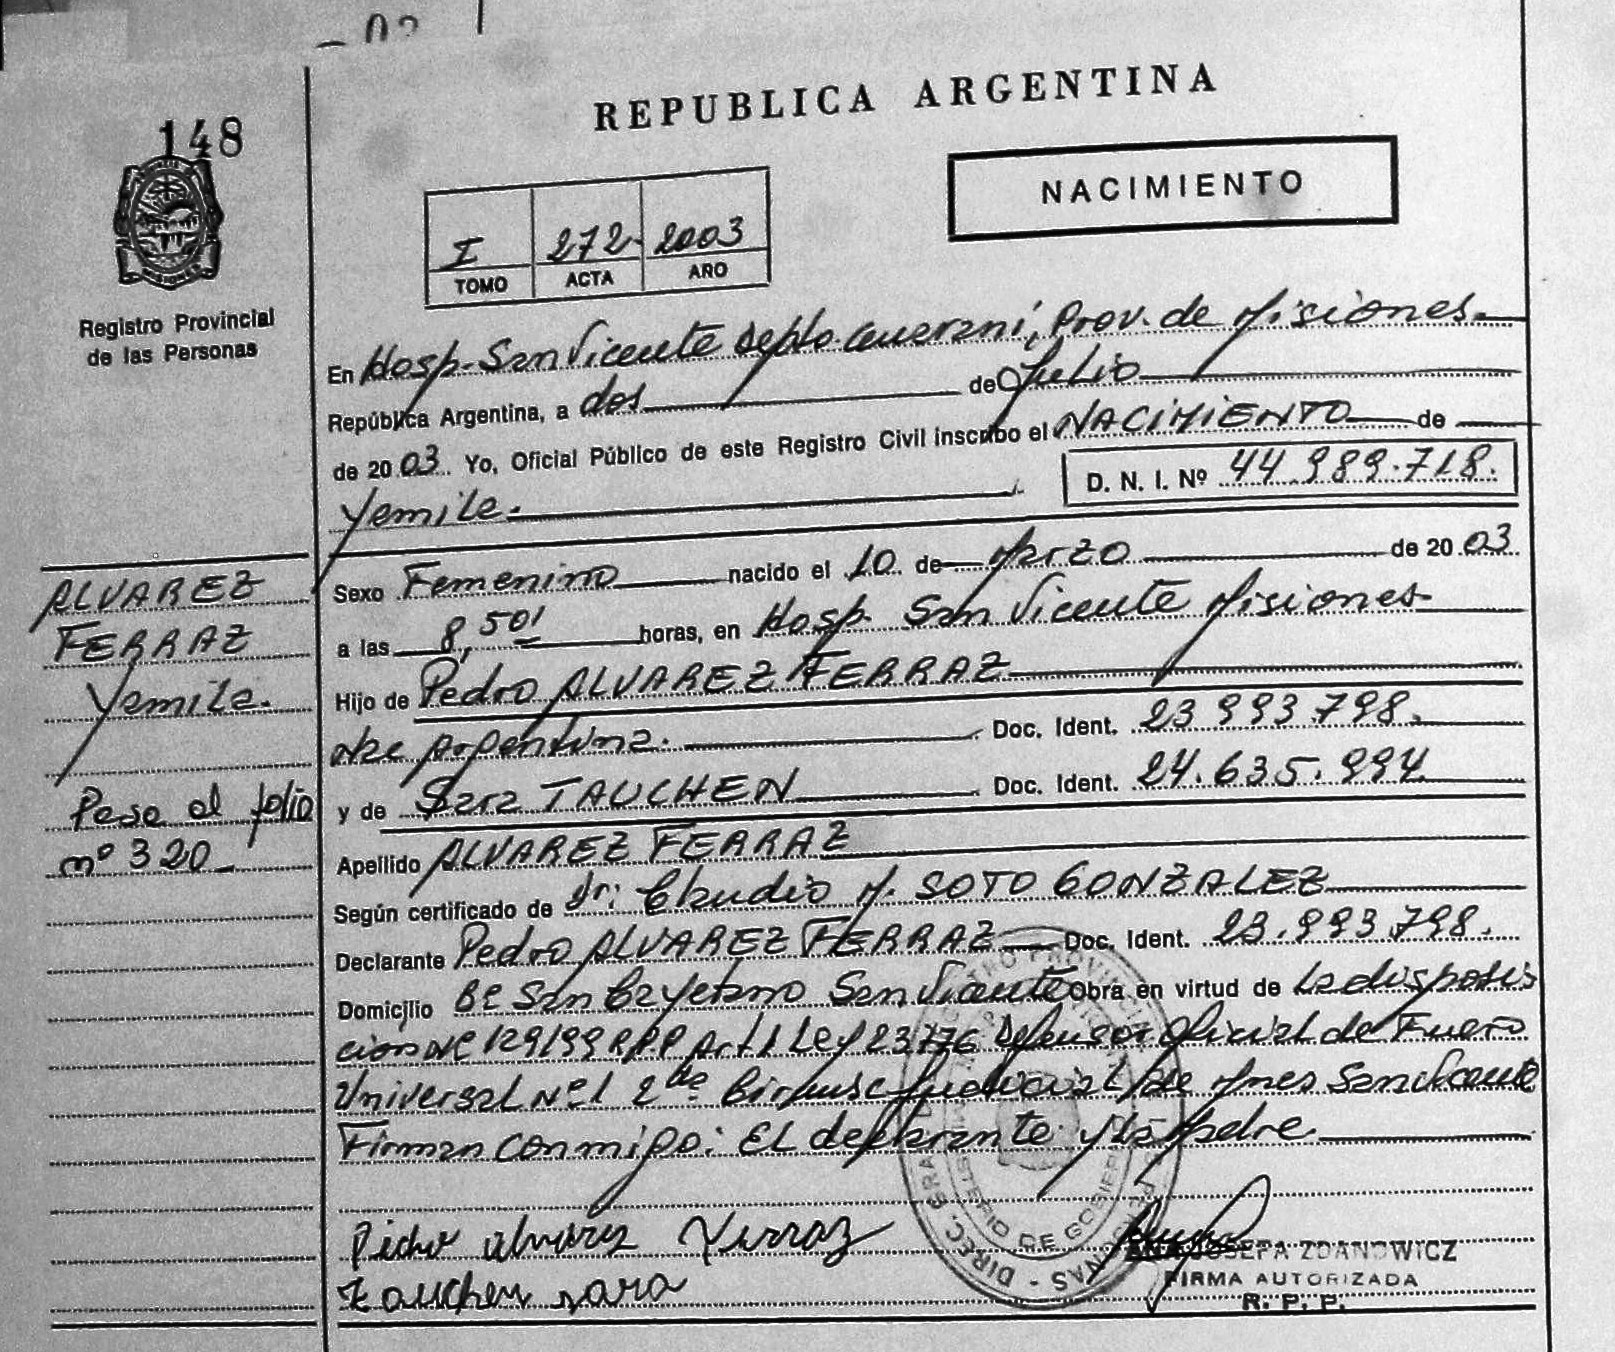 02
148
REPUBLICA ARGENTINA
NACIMIENTO
I 272 2003
TOMO ACTA AÑO
Registro Provincial
de las Personas
En Hosp. San Vicente depto. Guaraní, Prov. de Misiones
República Argentina, a dos de Julio
de 2003. Yo, Oficial Público de este Registro Civil inscribo el NACIMIENTO de
D. N. I. Nº 44.989.718.
Yamila.
Sexo Femenino nacido el 10 de Marzo de 2003
a las 8,50 horas, en Hosp. San Vicente Misiones
Hijo de Pedro ALVAREZ FERRAZ
Nac Argentina. Doc. Ident. 23.993.798.
y de Sara TAUCHEN Doc. Ident. 24.635.994
Apellido ALVAREZ FERRAZ
Según certificado de Dr: Claudio M. SOTO GONZALEZ
Declarante Pedro ALVAREZ FERRAZ Doc. Ident. 23.993.798.
Domicilio Bº San Cayetano San Vicente Obra en virtud de la disposi
cion Nº 129/99 R.P.P Art 1 Ley 23776 Defensor Oficial de Fuero
Universal Nº 1 2da Judicial de Mnes San Vicente
Firman conmigo: El declarante y la Madre
ALVAREZ
FERRAZ
Yamila.
Pasa al folio
nº 320
Pedro Alvarez Ferraz
Tauchen Sara
ANA JOSEFA ZDANOWICZ
FIRMA AUTORIZADA
R. P. P.